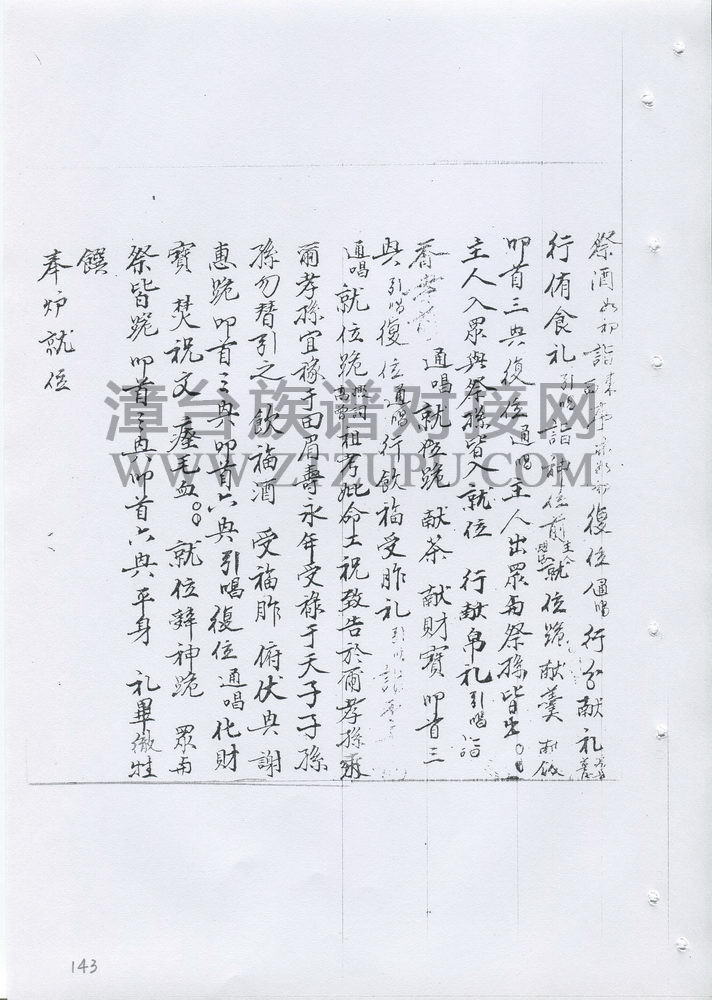 祭酒如初詣 復位通唱行分献礼
行侑食礼引唱詣神位前主人就位跪献羹献飯
叩首三興復位通唱主人出眾與祭孫皆出
主人入眾與祭孫皆入就位 行献帛礼引唱詣
香案前 通唱就位跪献茶 献財寶 叩首三
興引唱復位通唱行飲福受胙礼引唱詣
通唱就位跪 祖考妣命工祝致告於爾孝孫來
爾孝孫宜稼于田眉壽永年受祿于天子子孫
孫勿替引之 飲福酒 受福胙 俯伏興謝
惠跪叩首三興叩首六興引唱復位通唱化財
寶 焚祝文 瘞毛血 就位辞神跪 眾與
祭皆跪叩首三興叩首六興平身 礼畢徹牲
饌
奉炉就位
漳台族谱对接网
WWW.ZTZUPU.COM
143